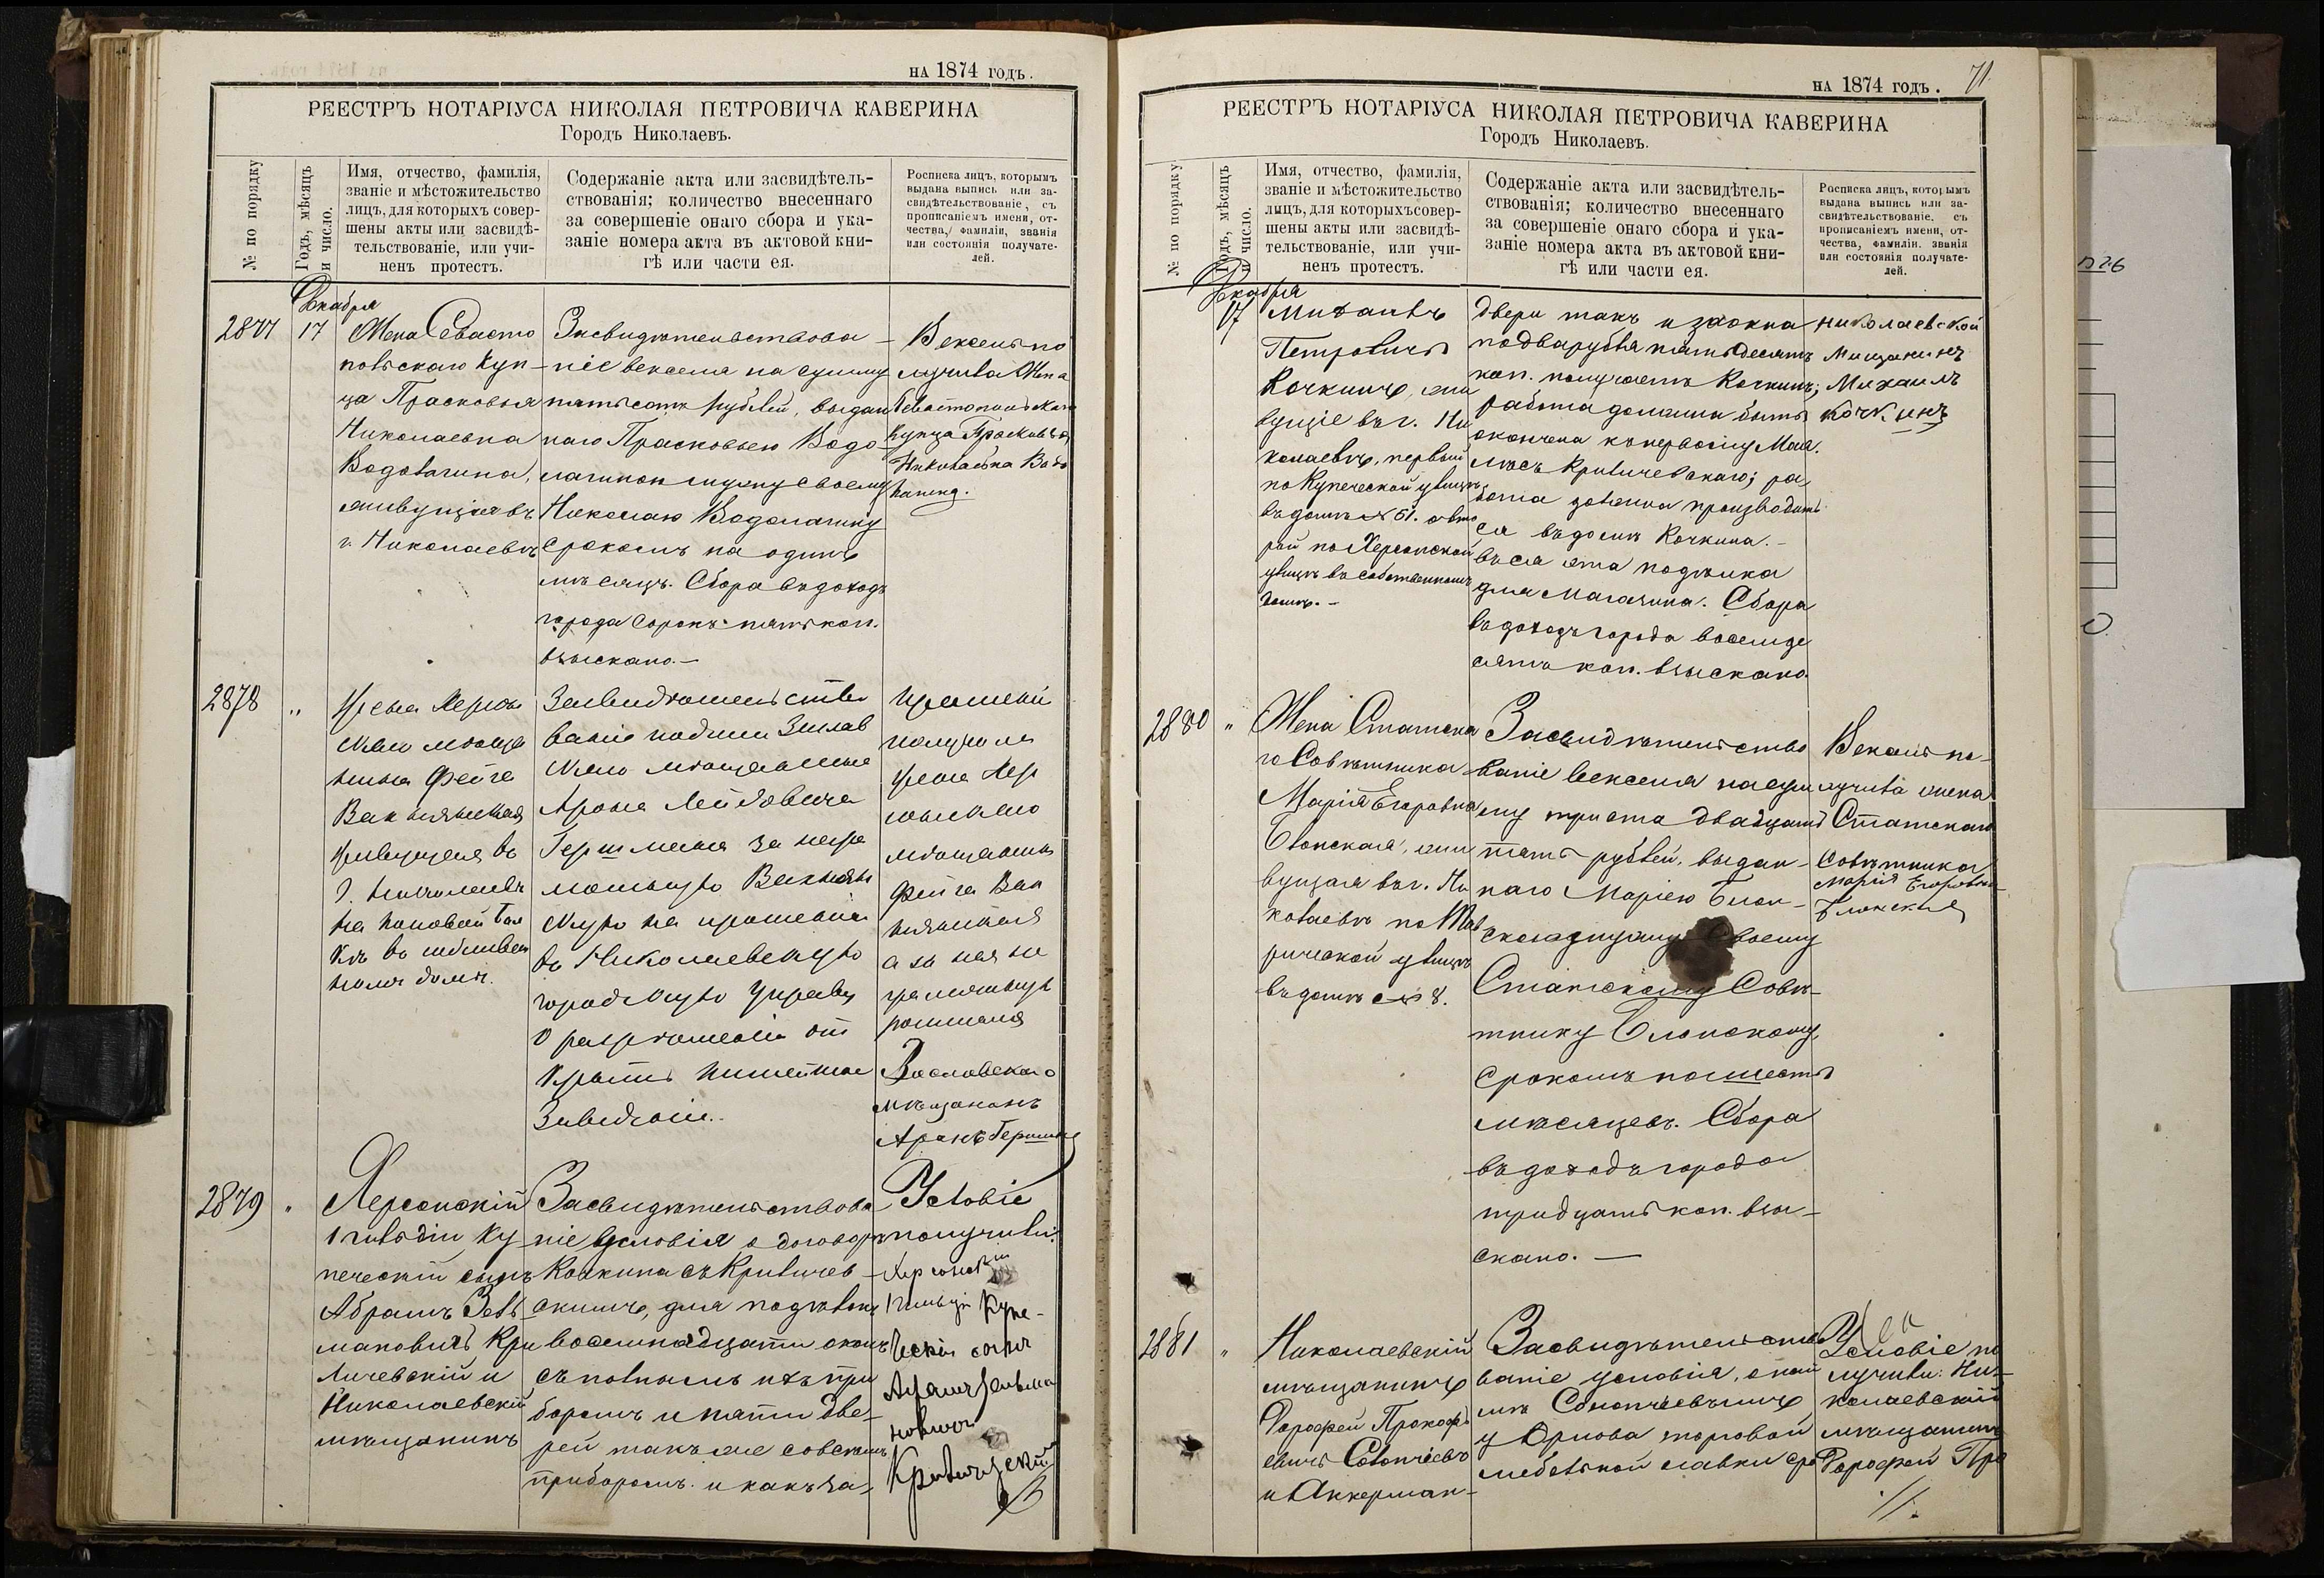 НА 1874 ГОДЪ.
РЕЕСТРЪ НОТАРІУСА НИКОЛАЯ ПЕТРОВИЧА КАВЕРИНА
Городъ Николаевъ.
№ по порядку
Годъ, мѣсяцъ
и число.
Имя, отчество, фамилія,
званіе и мѣстожительство
лицъ, для которыхъ совер-
шены акты или засвидѣ-
тельствованіе, или учи-
ненъ протестъ.
Содержаніе акта или засвидѣтель-
ствованія; количество внесеннаго
за совершеніе онаго сбора и ука-
заніе номера акта въ актовой кни-
гѣ или части ея.
Росписка лицъ, которымъ
выдана выпись или за-
свидѣтельствованіе, съ
прописаніемъ имени, от-
чества, фамиліи, званія
или состоянія получате-
лей.
Декабря
2877
17
Жена Севасто
польскаго Куп-
ца Прасковья
Николаевна
Водолагина,
живущая въ
г. Николаевѣ
Засвидѣтельствова-
ніе векселя на сумму
пятьсотъ рублей, выдан
наго Прасковьею Водо-
лагиною мужу своему
Николаю Водолагину
срокомъ на одинъ
мѣсяцъ. Сбора въ доходъ
города сорокъ пять коп.
взыскано.—
Вексель по
лучила Жена
Севастопольскаго
Купца Прасковья
Николаевна Водо
лагина.
2878
"
Жена Херсон
скаго мѣща
нина Фейга
Вакнянская
живущая въ
г. Николаевѣ
на Поповой бал
кѣ въ собствен
номъ домѣ.
Засвидѣтельство
ваніе подписи Заслав
скаго мѣщанина
Арона Лейбовича
Гершмана за негра
мотную Вакнян
скую на прошеніи
въ Николаевскую
городскую Управу
о разрѣшеніи от
крыть питейное
Заведеніе.
Прошеніе
получила
жена Хер
сонскаго
мѣщанина
Фейга Вак
нянская
а за нея не
грамотную
росписался
Заславскаго
мѣщанинъ
Аронъ Гершманъ
2879
"
Херсонскій
1 гильдіи Ку
печескій сынъ
Абрамъ Зель
мановичъ Кри
личевскій и
Николаевскій
мѣщанинъ
Засвидѣтельствова
ніе Условія о договорѣ
Кочкина съ Криличев
скимъ, для подѣлокъ
восемнадцати оконъ
съ полнымъ ихъ при
боромъ и пяти две-
рей также со всѣмъ
приборомъ. и какъ за-
Условіе
получили:
Херсонскій
1 гильдіи Купе-
ческій сынъ
Абрамъ Зельма
новичъ
НА 1874 ГОДЪ.
71.
РЕЕСТРЪ НОТАРІУСА НИКОЛАЯ ПЕТРОВИЧА КАВЕРИНА
Городъ Николаевъ.
№ по порядку
Годъ, мѣсяцъ
и число.
Имя, отчество, фамилія,
званіе и мѣстожительство
лицъ, для которыхъ совер-
шены акты или засвидѣ-
тельствованіе, или учи-
ненъ протестъ.
Содержаніе акта или засвидѣтель-
ствованія; количество внесеннаго
за совершеніе онаго сбора и ука-
заніе номера акта въ актовой кни-
гѣ или части ея.
Росписка лицъ, которымъ
выдана выпись или за-
свидѣтельствованіе, съ
прописаніемъ имени, от-
чества, фамиліи, званія
или состоянія получате-
лей.
Декабря
17
Михаилъ
Петровичъ
Кочкинъ, жи
вущіе въ г. Ни
колаевѣ, первый
по Купеческой улицѣ
въ домѣ № 61. а вто
рой по Херсонской
улицѣ въ собственномъ
домѣ.—
двери такъ и за окна
по два рубля пятьдесятъ
коп. получаетъ Кочкинъ;
работа должна быть
окончена къ первому Мая.
лѣсъ Криличевскаго; ра
бота должна производить
ся въ домѣ Кочкина.—
вся эта подѣлка
для Магазина. Сбора
въ доходъ города восемде
сятъ коп. взыскано
Николаевской
Мищанинъ
Михаилъ
Кочкинъ
2880
"
Жена Статска
го Совѣтника
Марія Егоровна
Блонская, жи
вущая въ г. Ни
колаевѣ по Тав
рической улицѣ
въ домѣ № 8.
Засвидѣтельство
ваніе векселя на сум
му триста двадцать
пять рублей, выдан-
наго Маріею Блон-
скою мужу своему
Статскому Совѣ-
тнику Блонскому,
срокомъ на шесть
мѣсяцевъ. Сбора
въ доходъ города
тридцать коп. взы-
скано.—
Вексель по-
лучила жена
Статскаго
Совѣтника
Марія Егоровна
Блонская
2881
"
Николаевскій
мѣщанинъ
Дорофей Прокофь
евичъ
и Аккерман-
Засвидѣтельство
ваніе условія, о най
мѣ
у Орлова торговой
мебельной лавки сро
Условіе по
лучили: Ни-
колаевскій
мѣщанинъ
Дорофей Про